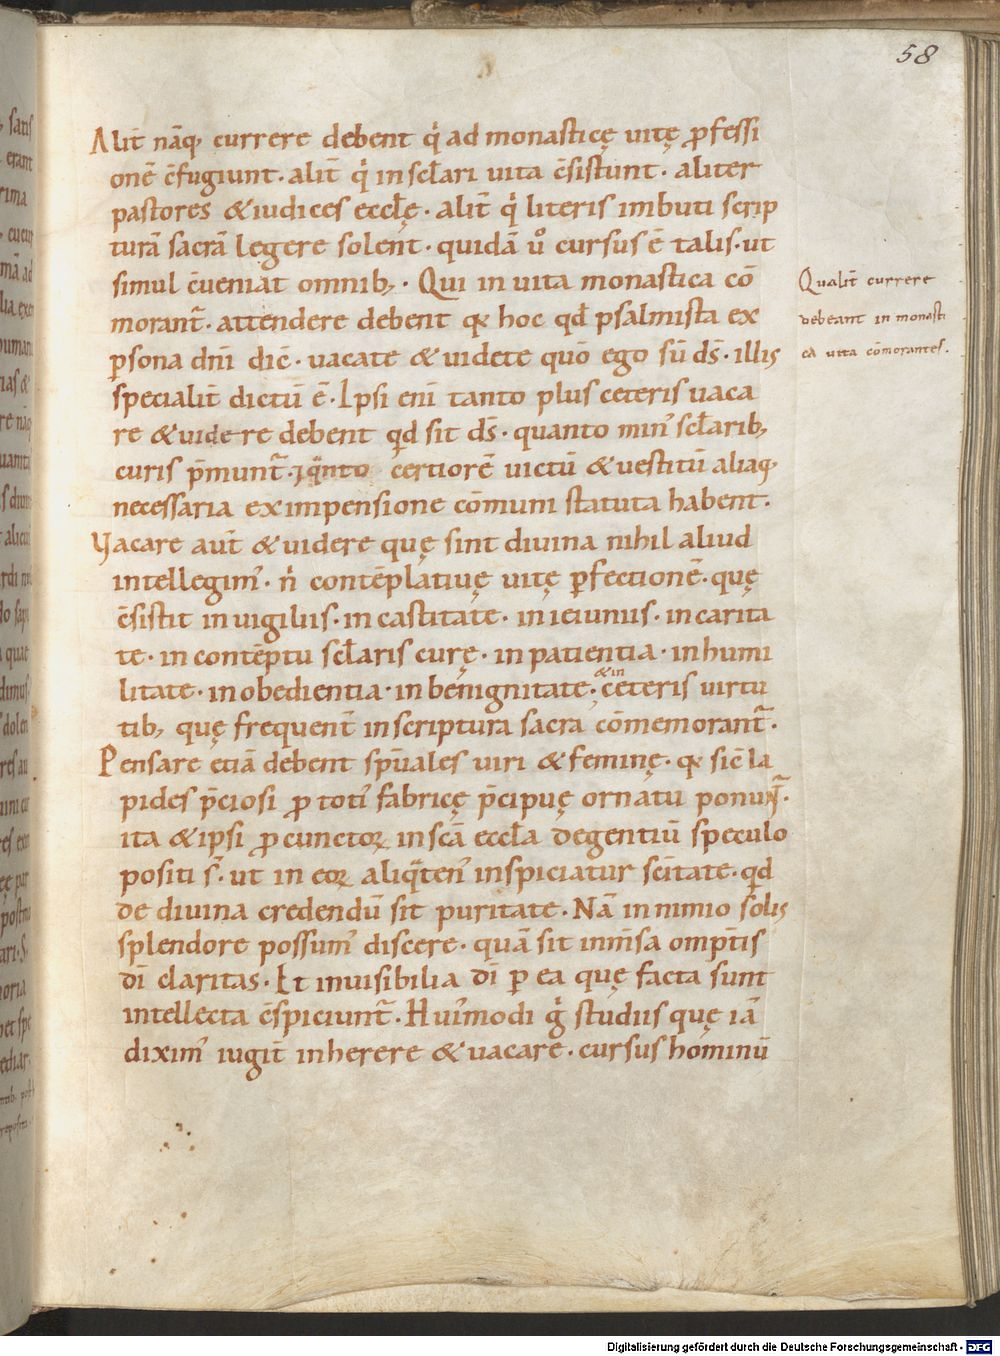 58
Alit̄ nāq; currere debent q̇ ad monasticę uitę ꝓfessi
onē c̄fugiunt. alit̄ q̇ in sclari uita c̄sistunt. aliter
pastores & iudices ecclę. alit̄ q̇ literis imbuti scrip
turā sacrā legere solent. quidā u̇ cursus ē talis. ut
simul c̄ueniat omnib;. Qui in uita monastica cō
morant̄. attendere debent qꝫ hoc qd psalmista ex
ꝑsona dn̄i dic̄. uacate & uidete quō ego sū dꝭ. illis
specialit̄ dictū ē. Ipsi enī tanto plus ceteris uaca
re & uidere debent qd sit dꝭ. quanto min' sclarib;
curis p̄munt̄. ⁊ q̄nto certiorē uictū & uestitū aliaq;
necessaria ex impensione cōmuni statuta habent.
Vacare aut̄ & uidere quę sint diuina nihil aliud
intellegim'. n̄ contēplatiuę uitę ꝑfectionē. quę
c̄sistit in uigiliis. in castitate. in ieiuniis. in carita
te. in contēptu sclaris curę. in patientia. in humi
litate. in obedientia. in benignitate. &in ceteris uirtu
tib; quę frequent̄ in scriptura sacra cōmemorant̄.
Pensare etiā debent spūales uiri & feminę. qꝫ sic̄ la
pides p̄ciosi ꝓ toti' fabricę p̄cipuę ornatu ponunt̄.
ita & ipsi ꝓ cunctoꝝ in scā eccla degentiū speculo
positi s̄. ut in eoꝝ aliq̄ten' inspiciatur sc̄itate. qd
de diuina credendū sit puritate. Nā in nimio solis
splendore possum' discere. quā sit inm̄sa omp̄tis
dī claritas. Et inuisibilia dī ꝑ ea quę facta sunt
intellecta c̄spiciunt̄. Hui'modi g̊ studiis quę iā
dixim' iugit̄ inherere & uacare. cursus hominū
Qualit̄ currere
debeant in monasti
ca uita cōmorantes.
Digitalisierung gefördert durch die Deutsche Forschungsgemeinschaft - DFG